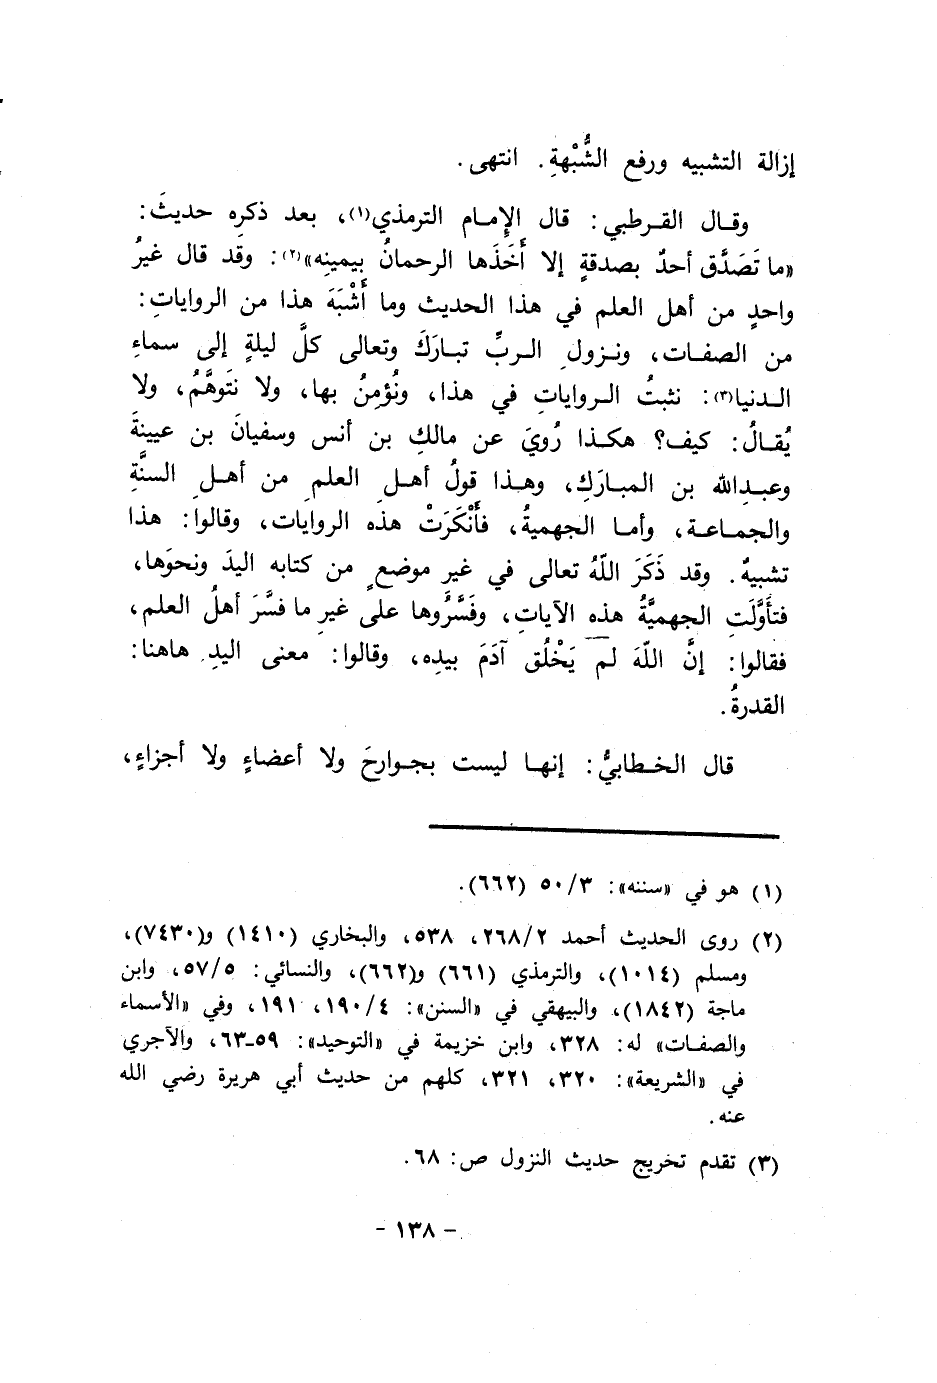 إزالة التشبيه ورفع الشُّبْهةِ. انتهى.
وقال القرطبي: قال الإمام الترمذي(١)، بعد ذكرِه حديثَ:
«ما تَصَدَّق أحدٌ بصدقةٍ إلا أَخَذَها الرحمانُ بِيمينِه»(٢): وقد قال غيرُ
واحدٍ من أهل العلم في هذا الحديث وما أَشْبَهَ هذا من الرواياتِ:
من الصفات، ونزولِ الربِّ تبارَكَ وتعالى كلَّ ليلةٍ إلى سماءِ
الدنيا(٣): نثبتُ الرواياتِ في هذا، ونُؤمِنُ بها، ولا نَتَوهَّمُ، ولا
يُقالُ: كيف؟ هكذا رُويَ عن مالكِ بن أنس وسفيانَ بن عيينةَ
وعبدِالله بن المبارَكِ، وهذا قولُ أهلِ العلمِ من أهلِ السنَّةِ
والجماعة، وأما الجهميةُ، فأَنْكَرَتْ هذه الروايات، وقالوا: هذا
تشبيهٌ. وقد ذَكَرَ اللّهُ تعالى في غيرِ موضعٍ من كتابه اليدَ ونحوَها،
فتأَوَّلَتِ الجهميَّةُ هذه الآياتِ، وفَسَّرُوها على غيرِ ما فسَّرَ أهلُ العلم،
فقالوا: إنَّ اللّهَ لم يَخْلُق آدَمَ بيدِه، وقالوا: معنى اليدِ هاهنا:
القدرةُ.
قال الخطابيُّ: إنها ليست بجوارحَ ولا أعضاءٍ ولا أجزاءٍ،
(١) هو في «سننه»: ٥٠/٣ (٦٦٢).
(٢) روى الحديث أحمد ٢٦٨/٢، ٥٣٨، والبخاري (١٤١٠) و(٧٤٣٠)،
ومسلم (١٠١٤)، والترمذي (٦٦١) و(٦٦٢)، والنسائي: ٥٧/٥، وابن
ماجة (١٨٤٢)، والبيهقي في «السنن»: ١٩٠/٤، ١٩١، وفي «الأسماء
والصفات» له: ٣٢٨، وابن خزيمة في «التوحيد»: ٥٩ـ٦٣، والآجري
في «الشريعة»: ٣٢٠، ٣٢١، كلهم من حديث أبي هريرة رضي الله
عنه.
(٣) تقدم تخريج حديث النزول ص: ٦٨.
- ١٣٨ -